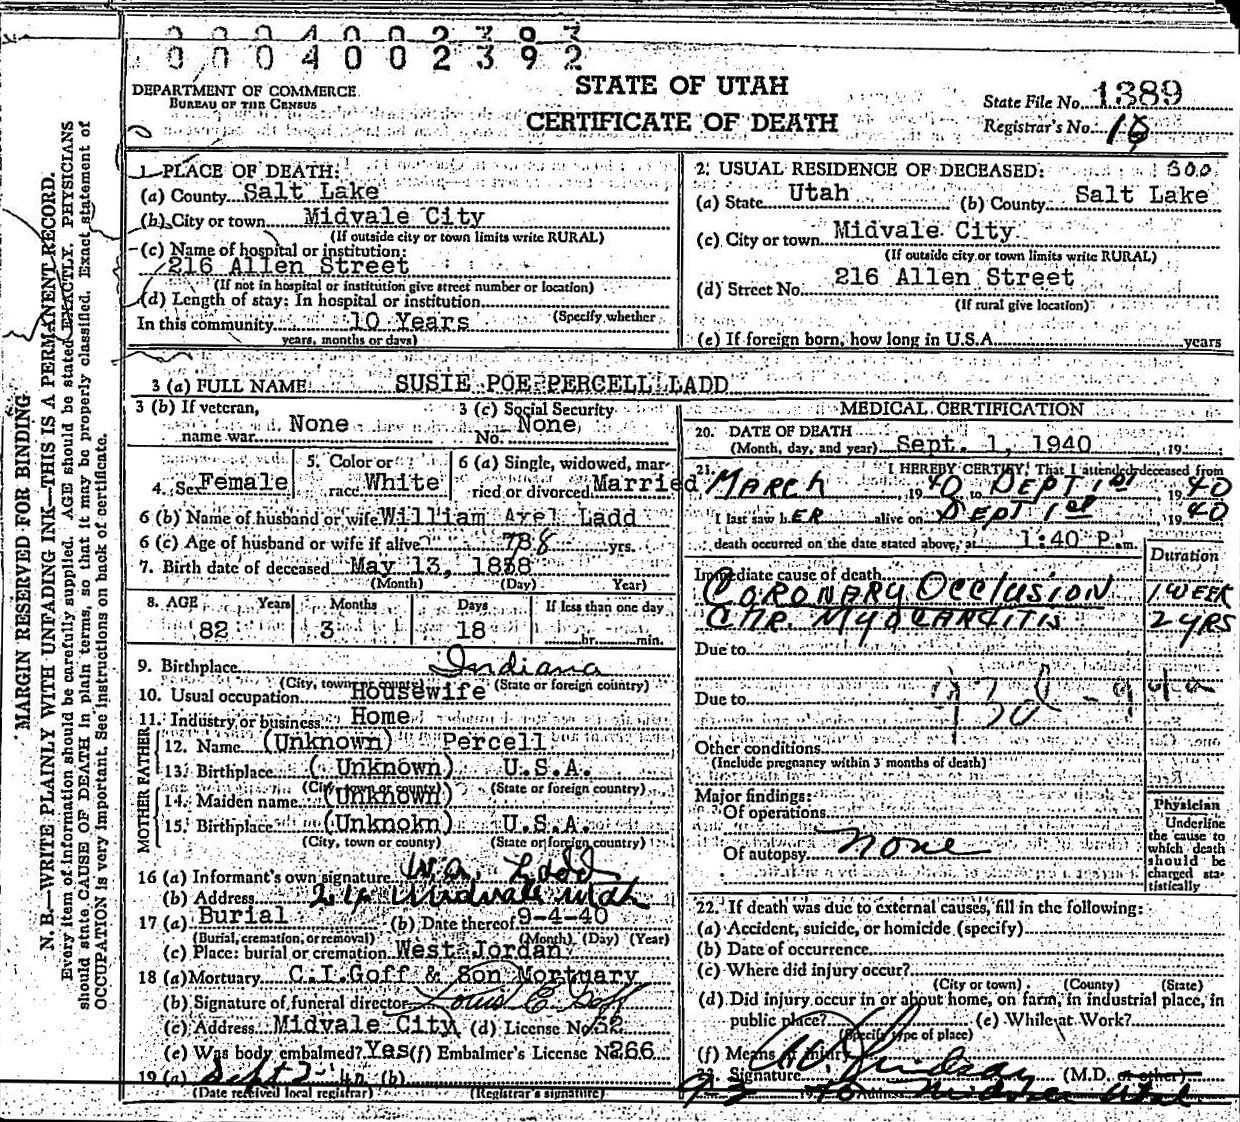 0 0 0 4 0 0 2 3 9 2
DEPARTMENT OF COMMERCE
BUREAU OF THE CENSUS
STATE OF UTAH
CERTIFICATE OF DEATH
State File No. 1389
Registrar's No.
MARGIN RESERVED FOR BINDING
N. B.—WRITE PLAINLY WITH UNFADING INK—THIS IS A PERMANENT RECORD.
Every item of information should be carefully supplied. AGE should be stated EXACTLY. PHYSICIANS
should state CAUSE OF DEATH in plain terms, so that it may be properly classified. Exact statement of
OCCUPATION is very important. See instructions on back of certificate.
1. PLACE OF DEATH:
(a) County Salt Lake
(b) City or town Midvale City
(If outside city or town limits write RURAL)
(c) Name of hospital or institution:
216 Allen Street
(If not in hospital or institution give street number or location)
(d) Length of stay: In hospital or institution
(Specify whether
In this community 10 Years
years, months or days)
2. USUAL RESIDENCE OF DECEASED: 300
(a) State Utah (b) County Salt Lake
(c) City or town Midvale City
(If outside city or town limits write RURAL)
(d) Street No. 216 Allen Street
(If rural give location)
(e) If foreign born, how long in U.S.A. years
3 (a) FULL NAME SUSIE POE PERCELL LADD
3 (b) If veteran,
name war. None
3 (c) Social Security
No. None
4. Sex Female
5. Color or
race White
6 (a) Single, widowed, mar-
ried or divorced Married
6 (b) Name of husband or wife William Axel Ladd
6 (c) Age of husband or wife if alive 78 yrs.
7. Birth date of deceased May 13, 1858
(Month) (Day) Year)
8. AGE Years Months Days If less than one day
82 3 18 hr. min.
9. Birthplace Indiana
(City, town or county) (State or foreign country)
10. Usual occupation Housewife
11. Industry or business Home
FATHER
12. Name (Unknown) Percell
13. Birthplace (Unknown) U.S.A.
(City, town or county) (State or foreign country)
MOTHER
14. Maiden name (Unknown)
15. Birthplace (Unknokn) U.S.A.
(City, town or county) (State or foreign country)
16 (a) Informant's own signature W.A. Ladd
(b) Address Midvale Utah
17 (a) Burial (b) Date thereof 9-4-40
(Burial, cremation, or removal) (Month) (Day) (Year)
(c) Place: burial or cremation West Jordan
18 (a) Mortuary C.I.Goff & Son Mortuary
(b) Signature of funeral director Louis E. Goff
(c) Address Midvale City (d) License No. 52
(e) Was body embalmed? Yes (f) Embalmer's License No. 266
19 (a) Sept 2 - 40 (b)
(Date received local registrar) (Registrar's signature)
MEDICAL CERTIFICATION
20. DATE OF DEATH
(Month, day, and year) Sept. 1, 1940 , 19
21. I HEREBY CERTIFY, That I attended deceased from
MARCH , 1940 to SEPT 1st 1940
I last saw hER alive on SEPT 1st , 1940
death occurred on the date stated above, at 1:40 P. m.
Duration
Immediate cause of death
CORONARY OCCLUSION 1 WEEK
CHR. MYOCARDITIS 2 YRS
Due to
Due to
Other conditions
(Include pregnancy within 3 months of death)
Major findings:
Of operations
Of autopsy none
Physician
Underline
the cause to
which death
should be
charged sta-
tistically
22. If death was due to external causes, fill in the following:
(a) Accident, suicide, or homicide (specify)
(b) Date of occurrence
(c) Where did injury occur?
(City or town) (County) (State)
(d) Did injury occur in or about home, on farm, in industrial place, in
public place? (e) While at Work?
(Specify type of place)
(f) Means of injury
23. Signature (M.D. or other)
9-3 1940 Address Midvale Utah